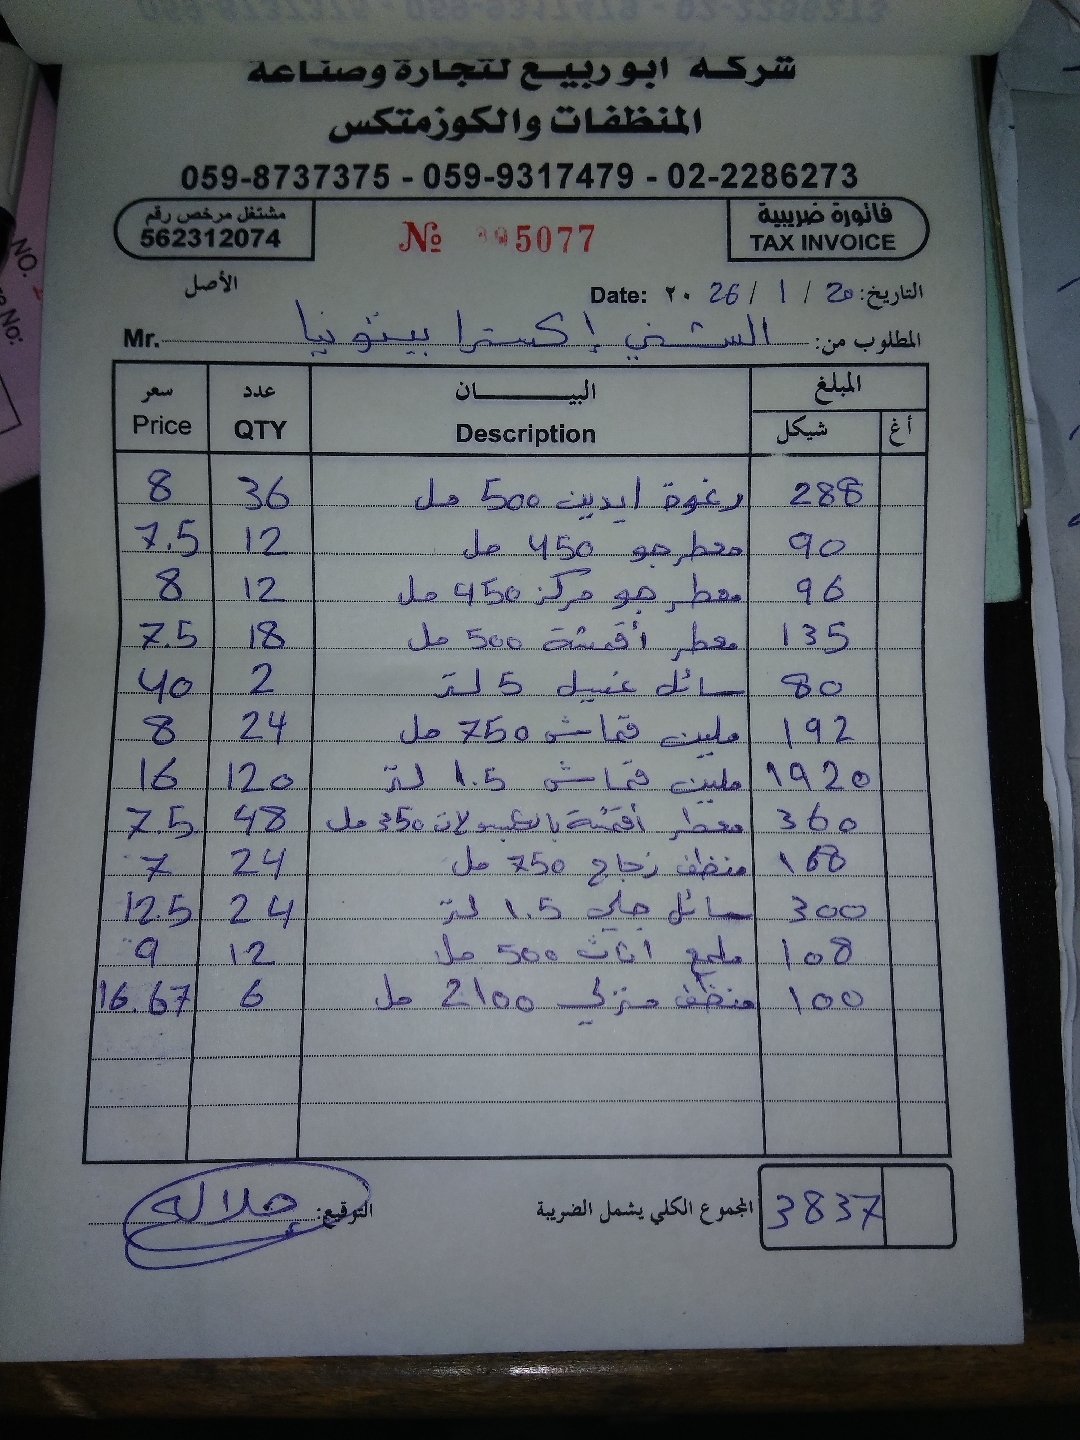 شركة ابو ربيع لتجارة وصناعة
المنظفات والكوزمتكس
059-8737375 - 059-9317479 - 02-2286273
مشتغل مرخص رقم
562312074
№ 5077
فاتورة ضريبية
TAX INVOICE
الأصل
التاريخ: 20 / 1 / 26 ٢٠ Date:
المطلوب من: الشني إكسترا بيتونيا Mr.
المبلغ البيــــان عدد سعر
أغ شيكل Description QTY Price
288 رغوة ايدين 500 مل 36 8
90 معطر جو 450 مل 12 7.5
96 معطر جو مركز 450 مل 12 8
135 معطر أقمشة 500 مل 18 7.5
80 سائل غسيل 5 لتر 2 40
192 ملين قماش 750 مل 24 8
1920 ملين قماش 1.5 لتر 120 16
360 معطر أقمشة بالكبسولات 350 مل 48 7.5
168 منظف زجاج 750 مل 24 7
300 سائل جلي 1.5 لتر 24 12.5
108 ملمع اثاث 500 مل 12 9
100 منظف منزلي 2100 مل 6 16.67
3837 المجموع الكلي يشمل الضريبة
التوقيع: